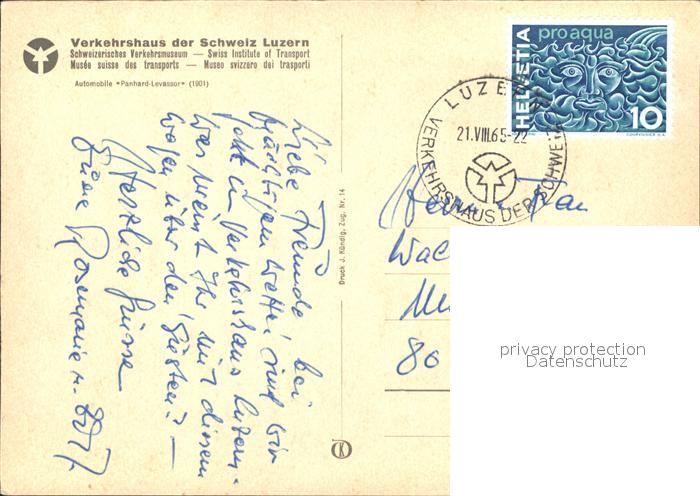 Verkehrshaus der Schweiz Luzern
Schweizerisches Verkehrsmuseum — Swiss Institute of Transport
Musée suisse des transports — Museo svizzero dei trasporti
Automobile «Panhard-Levassor» (1901)
Liebe Freunde bei
prächtigem Wetter sind wir
jetzt im Verkehrshaus Luzern.
Was meint Ihr mit diesem
Wagen über den
Herzliche Grüsse
Eure Rosemarie u.
Druck J. Kündig, Zug, Nr. 14
K
HELVETIA
pro aqua
10
COURVOISIER S.A.
LUZERN
21.VIII.65-22
VERKEHRSHAUS DER SCHWEIZ
80
privacy protection
Datenschutz